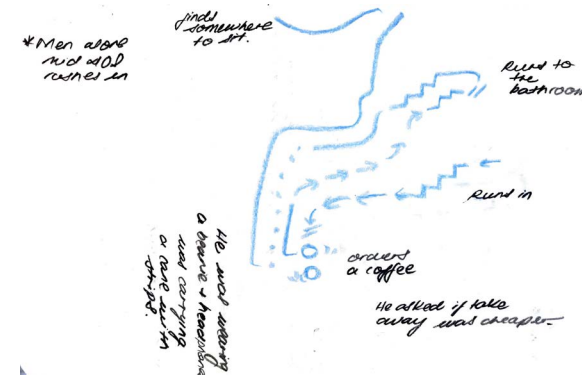 finds
somewhere
to sit.
*Men alone
mid 20s
rushes in
Runs to
the
bathroom
Runs in
orders
a coffee
He asked if take
away was cheaper.
He was wearing
a beanie + headphones
was carrying
a cane with
strips.